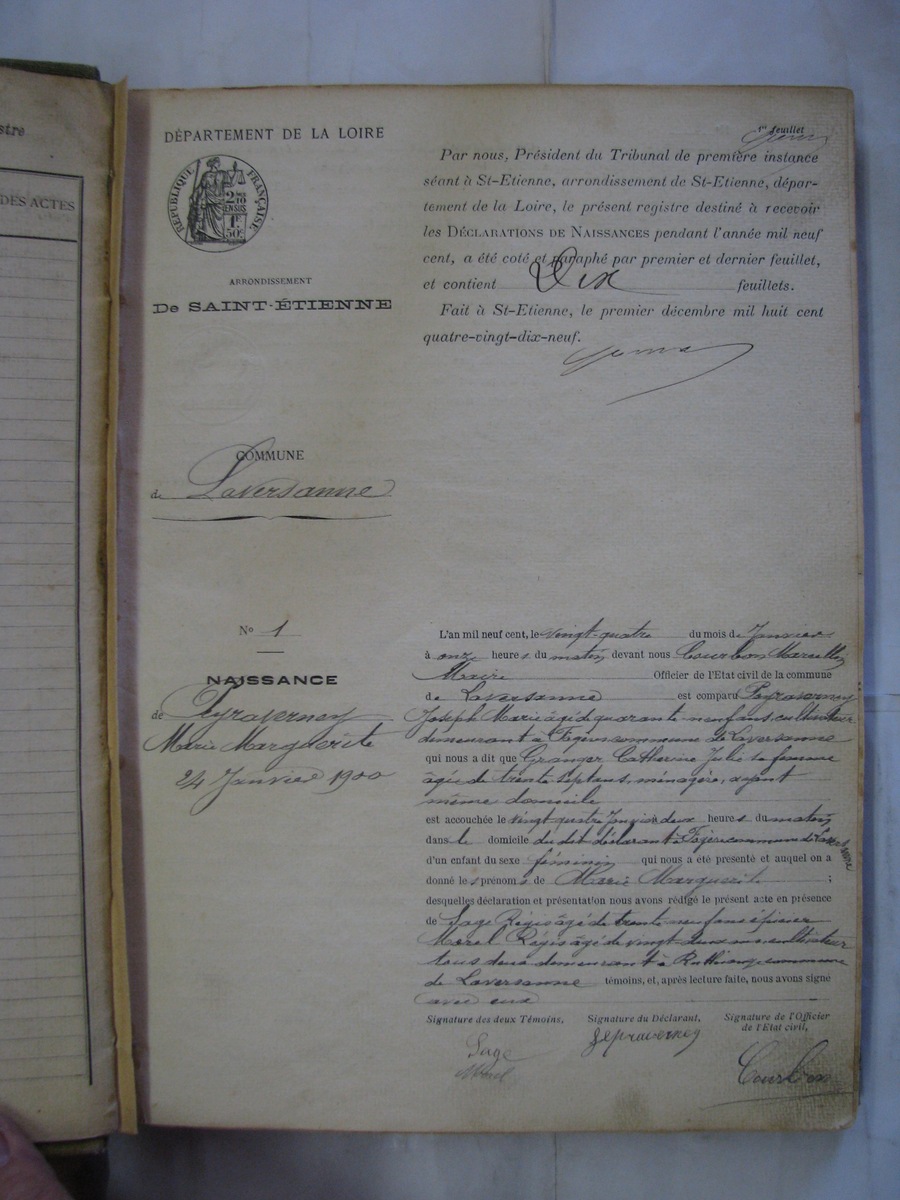 stre
DES ACTES
DÉPARTEMENT DE LA LOIRE
RÉPUBLIQUE FRANÇAISE
2 10
EN SUS
1F
50c
ARRONDISSEMENT
De SAINT-ÉTIENNE
COMMUNE
de Laversanne
1er feuillet
Par nous, Président du Tribunal de première instance
séant à St-Etienne, arrondissement de St-Etienne, dépar-
tement de la Loire, le présent registre destiné à recevoir
les DÉCLARATIONS DE NAISSANCES pendant l'année mil neuf
cent, a été coté et paraphé par premier et dernier feuillet,
et contient Dix feuillets.
Fait à St-Etienne, le premier décembre mil huit cent
quatre-vingt-dix-neuf.
N° 1
NAISSANCE
de Peyraverney
Marie Marguerite
24 Janvier 1900
L'an mil neuf cent, le vingt-quatre du mois de Janvier
à onze heures du matin devant nous Courbon Marcellin
Maire Officier de l'Etat civil de la commune
de Laversanne est comparu Peyraverney
Joseph Marie âgé de quarante-neuf ans, cultivateur
demeurant à commune de Laversanne
qui nous a dit que Granger Catherine Julie sa femme
âgée de trente sept ans, ménagère, ayant
même domicile
est accouchée le vingt quatre Janvier à deux heures du matin
dans le domicile du dit déclarant à commune de Laversanne
d'un enfant du sexe féminin qui nous a été presenté et auquel on a
donné les prénoms de Marie Marguerite ;
desquelles déclaration et présentation nous avons rédigé le présent acte en présence
de Sage Régis âgé de trente neuf ans épicier
Morel Régis âgé de vingt deux ans cultivateur
tous deux demeurant à Ruthiange commune
de Laversanne témoins, et, après lecture faite, nous avons signé
avec eux
Signature des deux Témoins,
Signature du Déclarant,
Signature de l'Officier
de l'Etat civil,
Sage
Morel
Peyraverney
Courbon